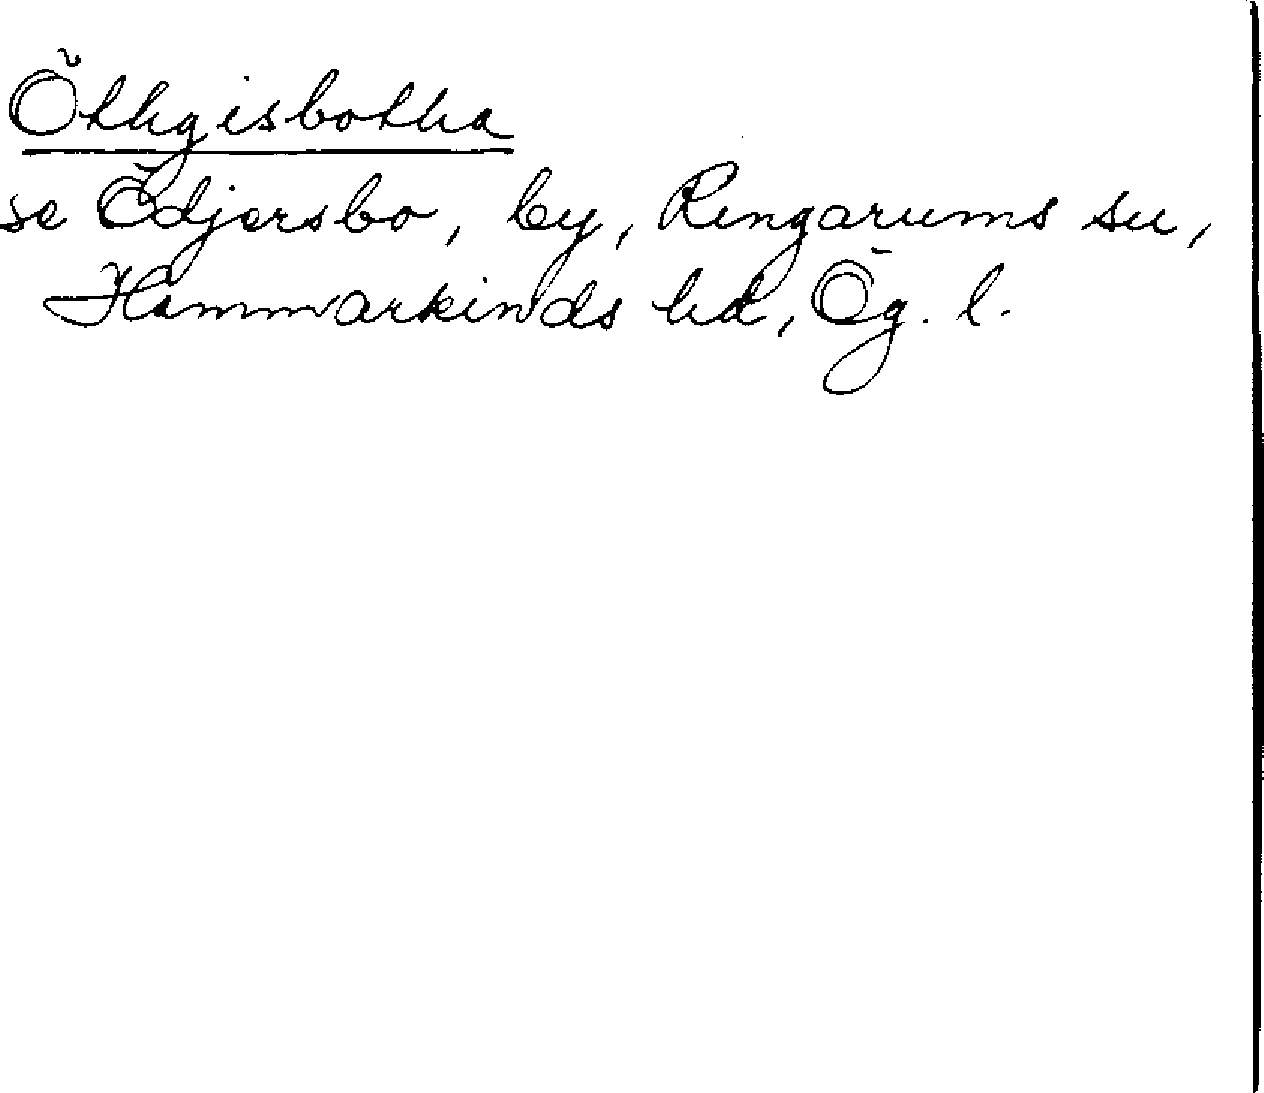 Öthgisbotha
se Ödjersbo, by, Ringarums sn,
Hammarkinds hd, Ög. l.